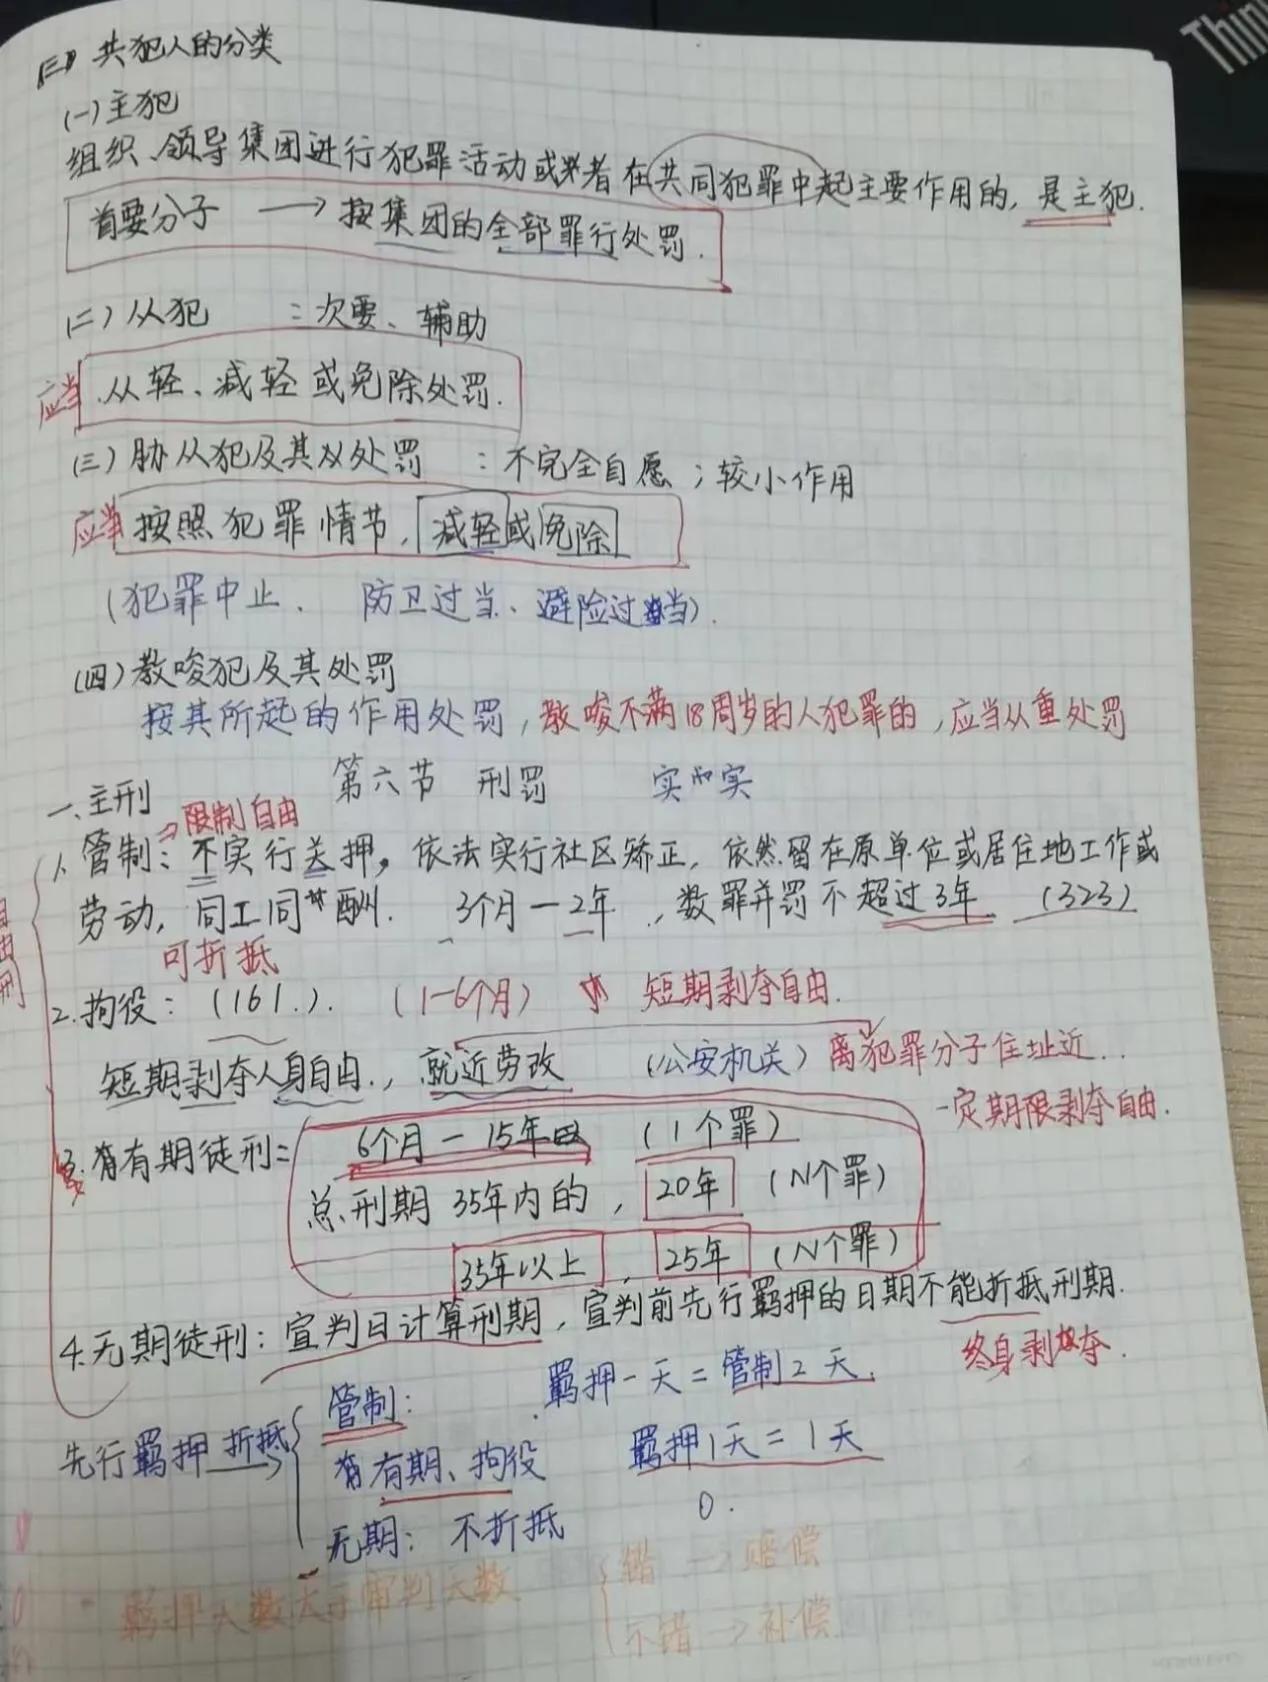 Thin
共犯人的分类
(一)主犯
组织、领导集团进行犯罪活动或者在共同犯罪中起主要作用的，是主犯.
首要分子 → 按集团的全部罪行处罚.
(二)从犯 : 次要、辅助
应当 从轻、减轻或免除处罚.
(三)胁从犯及其处罚 : 不完全自愿；较小作用
应当 按照犯罪情节，减轻或免除
(犯罪中止、 防卫过当、避险过当).
(四)教唆犯及其处罚
按其所起的作用处罚，教唆不满18周岁的人犯罪的，应当从重处罚
第六节 刑罚
一、主刑
⇒限制自由
1、管制：不实行关押，依法实行社区矫正，依然留在原单位或居住地工作或
劳动，同工同酬. 3个月—2年，数罪并罚不超过3年 (323)
自由刑
可折抵
2.拘役：(161.). (1-6个月) 短期剥夺自由.
短期剥夺人身自由.，就近劳改 (公安机关) 离犯罪分子住址近...
一定期限剥夺自由.
3.有期徒刑= 6个月—15年 (1个罪)
总刑期 35年内的，20年 (N个罪)
35年以上，25年 (N个罪)
4.无期徒刑：宣判日计算刑期，宣判前先行羁押的日期不能折抵刑期.
终身剥夺.
管制： 羁押一天=管制2天.
先行羁押 折抵→ 有期、拘役 羁押1天=1天
无期： 不折抵 0.
羁押天数大于审判天数 错→赔偿
不错→补偿